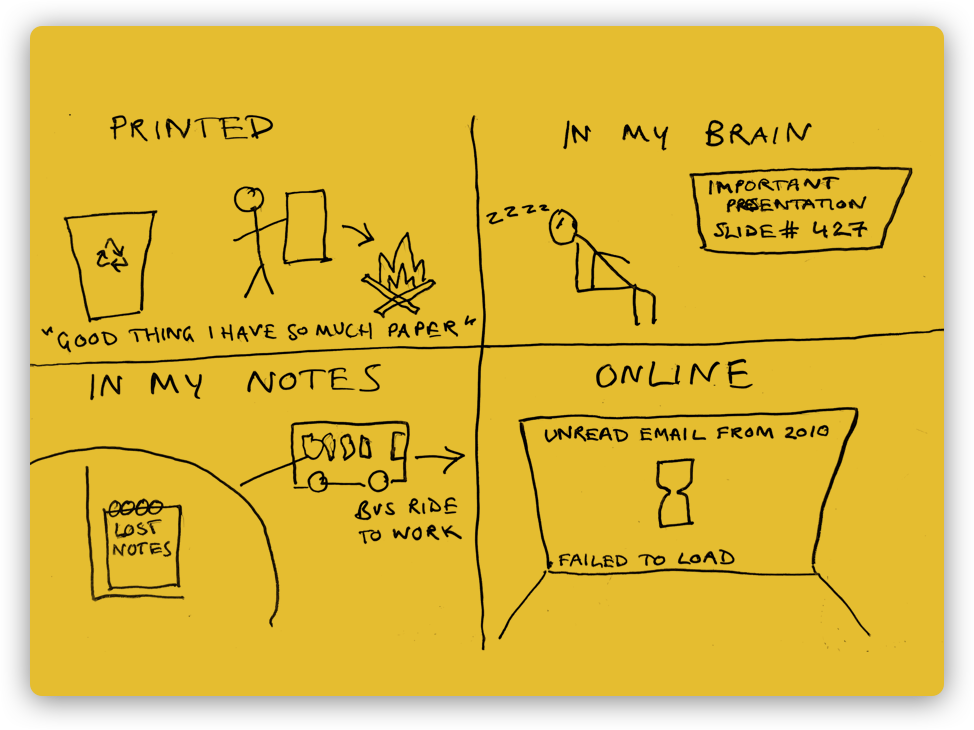 PRINTED
"GOOD THING I HAVE SO MUCH PAPER"
IN MY BRAIN
ZZZZ
IMPORTANT
PRESENTATION
SLIDE # 427
IN MY NOTES
LOST
NOTES
BUS RIDE
TO WORK
ONLINE
UNREAD EMAIL FROM 2010
FAILED TO LOAD